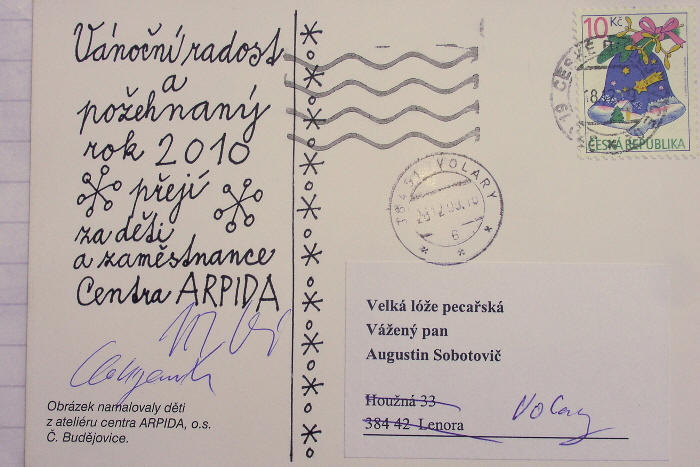 Vánoční radost
a
požehnaný
rok 2010
přejí
za děti
a zaměstnance
Centra ARPIDA
Obrázek namalovaly děti
z ateliéru centra ARPIDA, o.s.
Č. Budějovice.
10 Kč
ČESKÁ REPUBLIKA
384 51 VOLARY
6
Velká lóže pecařská
Vážený pan
Augustin Sobotovič
Houžná 33
384 42 Lenora
Volary